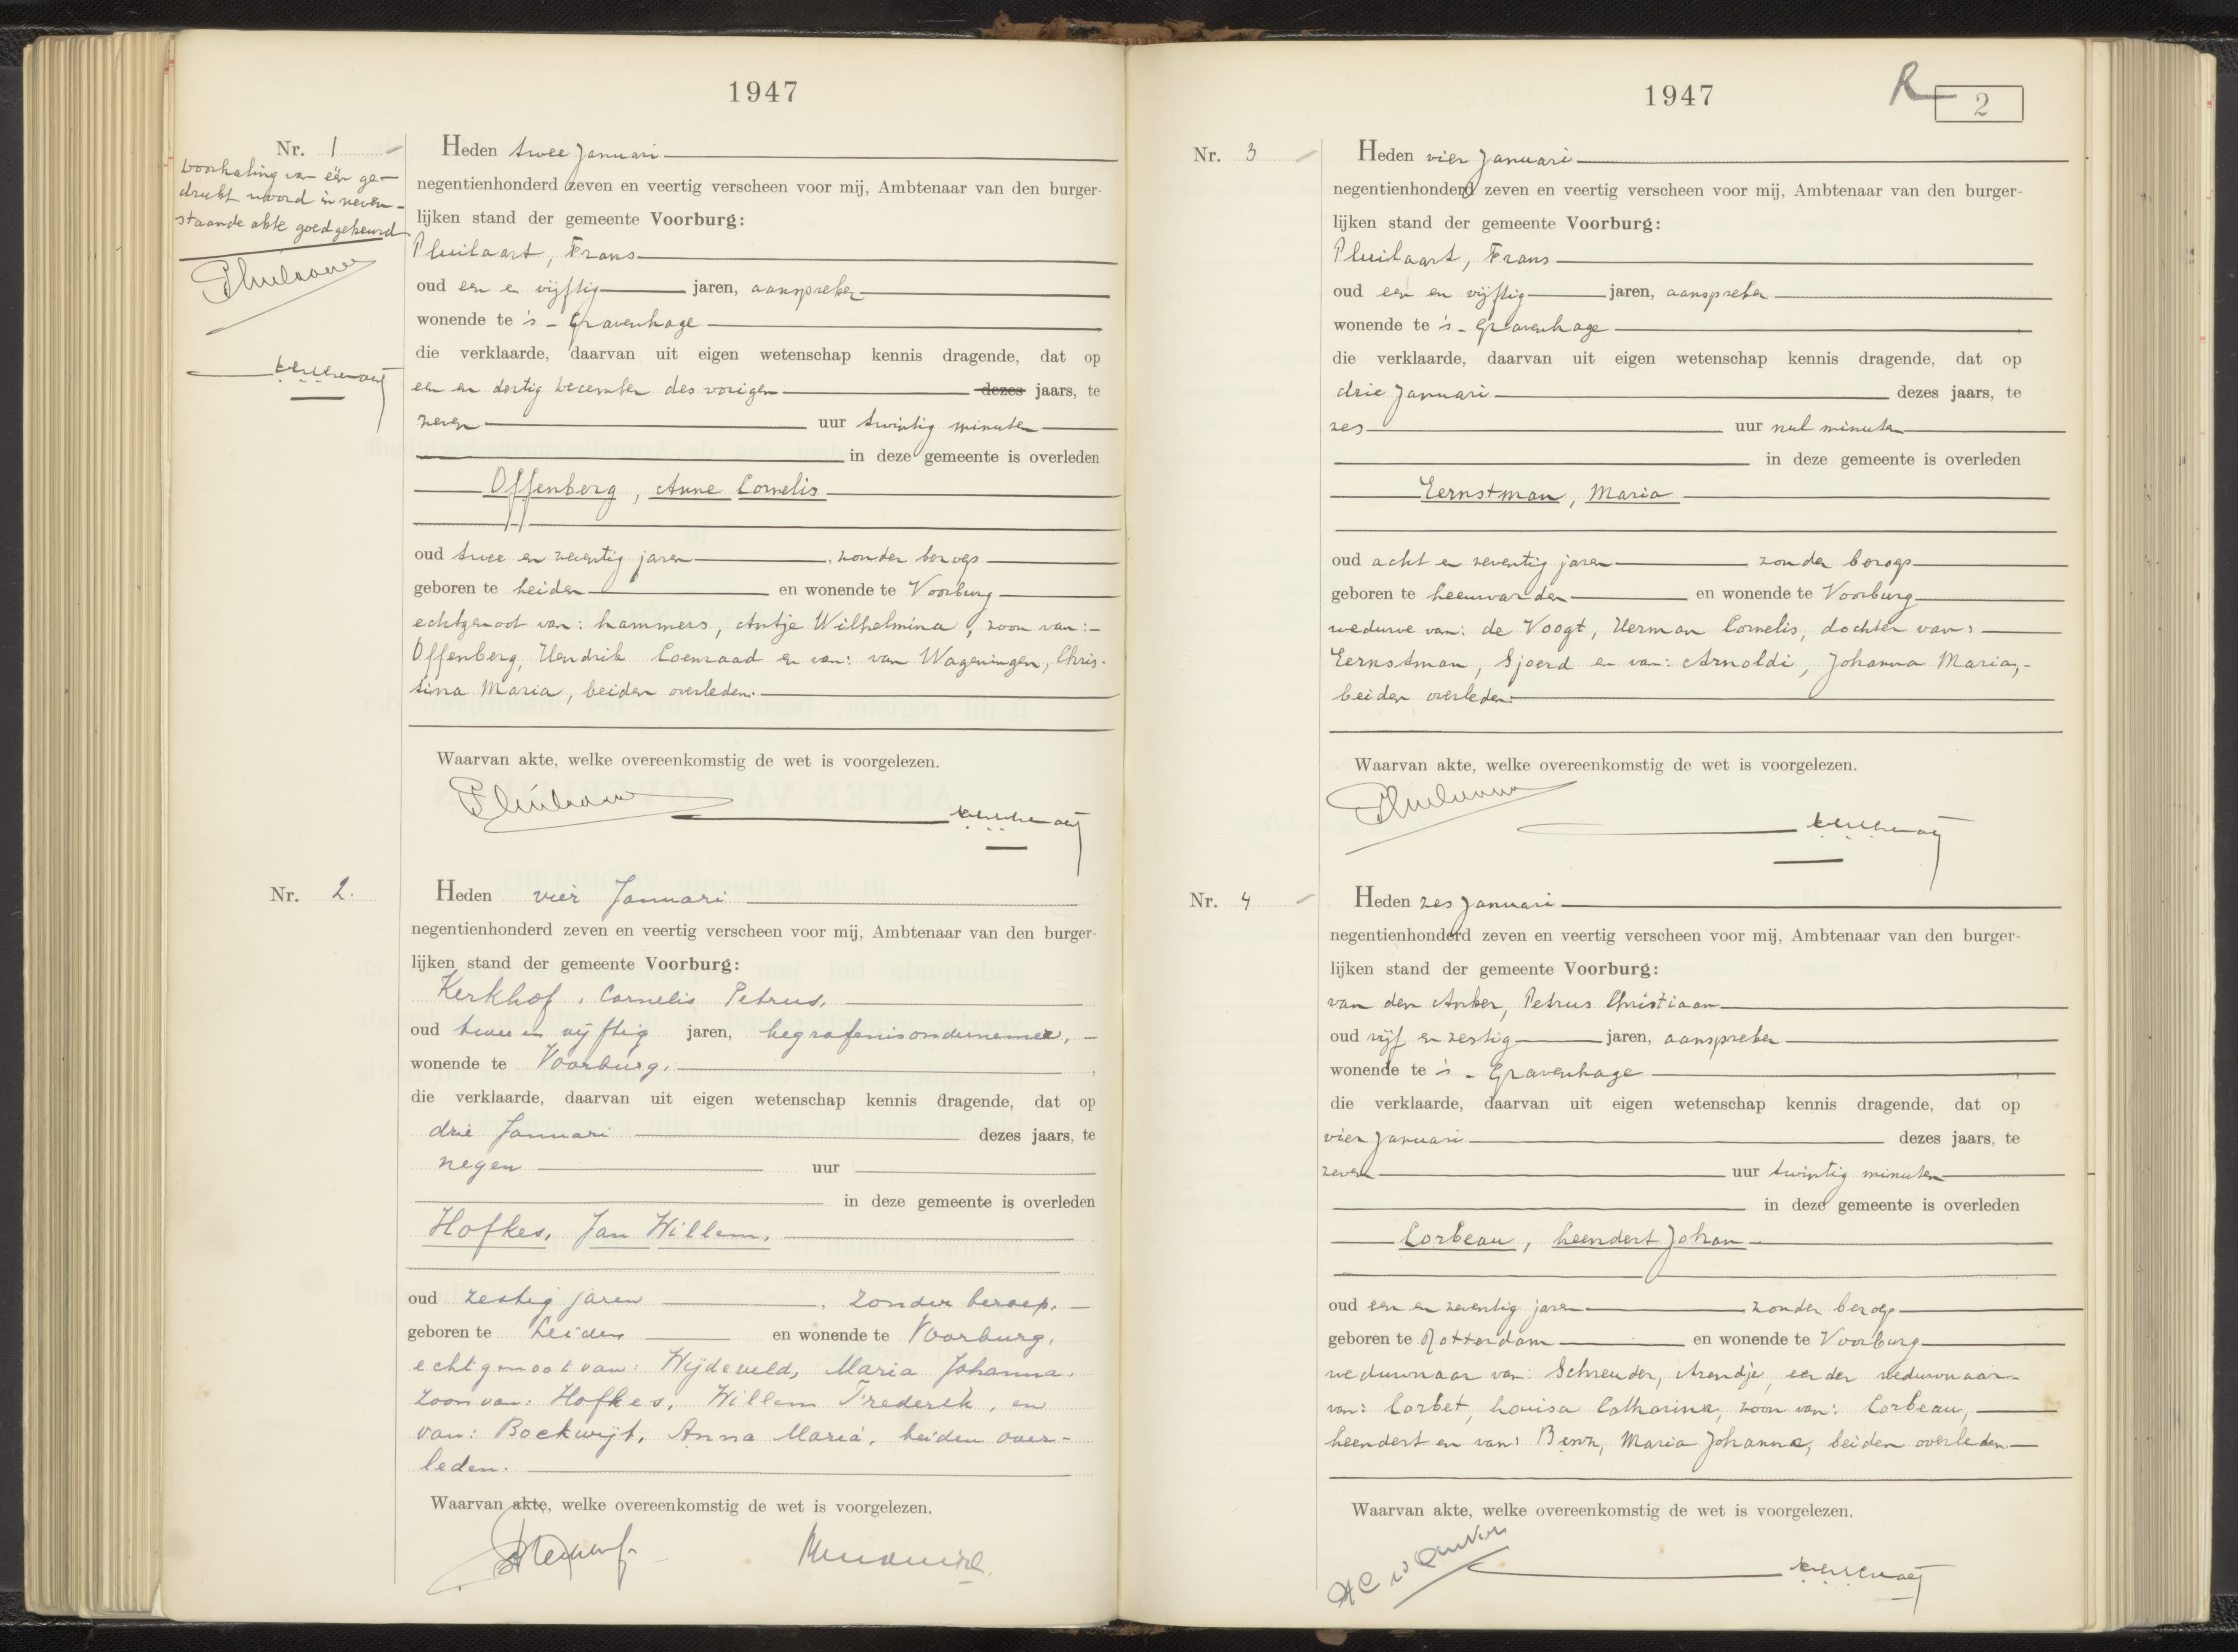 1947
Nr. 1
Doorhaling van één ge-
drukt woord in neven-
staande akte goedgekeurd
Heden twee Januari
negentienhonderd zeven en veertig verscheen voor mij, Ambtenaar van den burger-
lijken stand der gemeente Voorburg:
Pluilaart, Frans
oud een en vijftig jaren, aanspreker
wonende te 's-Gravenhage
die verklaarde, daarvan uit eigen wetenschap kennis dragende, dat op
een en dertig December des vorigen dezes jaars, te
zeven uur twintig minuten
in deze gemeente is overleden
Offenberg, Anne Cornelis
oud twee en zeventig jaren, zonder beroep
geboren te Leiden en wonende te Voorburg
echtgenoot van: Lammers, Antje Wilhelmina, zoon van:
Offenberg, Hendrik Coenraad en van: van Wageningen, Chris-
tina Maria, beiden overleden.
Waarvan akte, welke overeenkomstig de wet is voorgelezen.
Nr. 2.
Heden vier Januari
negentienhonderd zeven en veertig verscheen voor mij, Ambtenaar van den burger-
lijken stand der gemeente Voorburg:
Kerkhof, Cornelis Petrus,
oud twee en vijftig jaren, begrafenisondernemer,
wonende te Voorburg,
die verklaarde, daarvan uit eigen wetenschap kennis dragende, dat op
drie Januari dezes jaars, te
negen uur
in deze gemeente is overleden
Hofkes, Jan Willem,
oud zestig jaren, zonder beroep,
geboren te Leiden en wonende te Voorburg,
echtgenoot van: Wijdeveld, Maria Johanna,
zoon van: Hofkes, Willem Frederik, en
van: Bockwijt, Anna Maria, beiden over-
leden.
Waarvan akte, welke overeenkomstig de wet is voorgelezen.
1947
R 2
Nr. 3
Heden vier Januari
negentienhonderd zeven en veertig verscheen voor mij, Ambtenaar van den burger-
lijken stand der gemeente Voorburg:
Pluilaart, Frans
oud een en vijftig jaren, aanspreker
wonende te 's-Gravenhage
die verklaarde, daarvan uit eigen wetenschap kennis dragende, dat op
drie Januari dezes jaars, te
zes uur nul minuten
in deze gemeente is overleden
Eernstman, Maria
oud acht en zeventig jaren zonder beroep
geboren te Leeuwarden en wonende te Voorburg
weduwe van: de Voogt, Herman Cornelis, dochter van:
Eernstman, Sjoerd en van: Arnoldi, Johanna Maria,
beiden overleden.
Waarvan akte, welke overeenkomstig de wet is voorgelezen.
Nr. 4
Heden zes Januari
negentienhonderd zeven en veertig verscheen voor mij, Ambtenaar van den burger-
lijken stand der gemeente Voorburg:
van den Anker, Petrus Christiaan
oud vijf en zestig jaren, aanspreker
wonende te 's-Gravenhage
die verklaarde, daarvan uit eigen wetenschap kennis dragende, dat op
vier Januari dezes jaars, te
zeven uur twintig minuten
in deze gemeente is overleden
Corbeau, Leendert Johan
oud een en zeventig jaren zonder beroep
geboren te Rotterdam en wonende te Voorburg
weduwnaar van: Schreuder, Arendje, eerder weduwnaar
van: Corbet, Louisa Catharina, zoon van: Corbeau,
Leendert en van: Maria Johanna, beiden overleden
Waarvan akte, welke overeenkomstig de wet is voorgelezen.